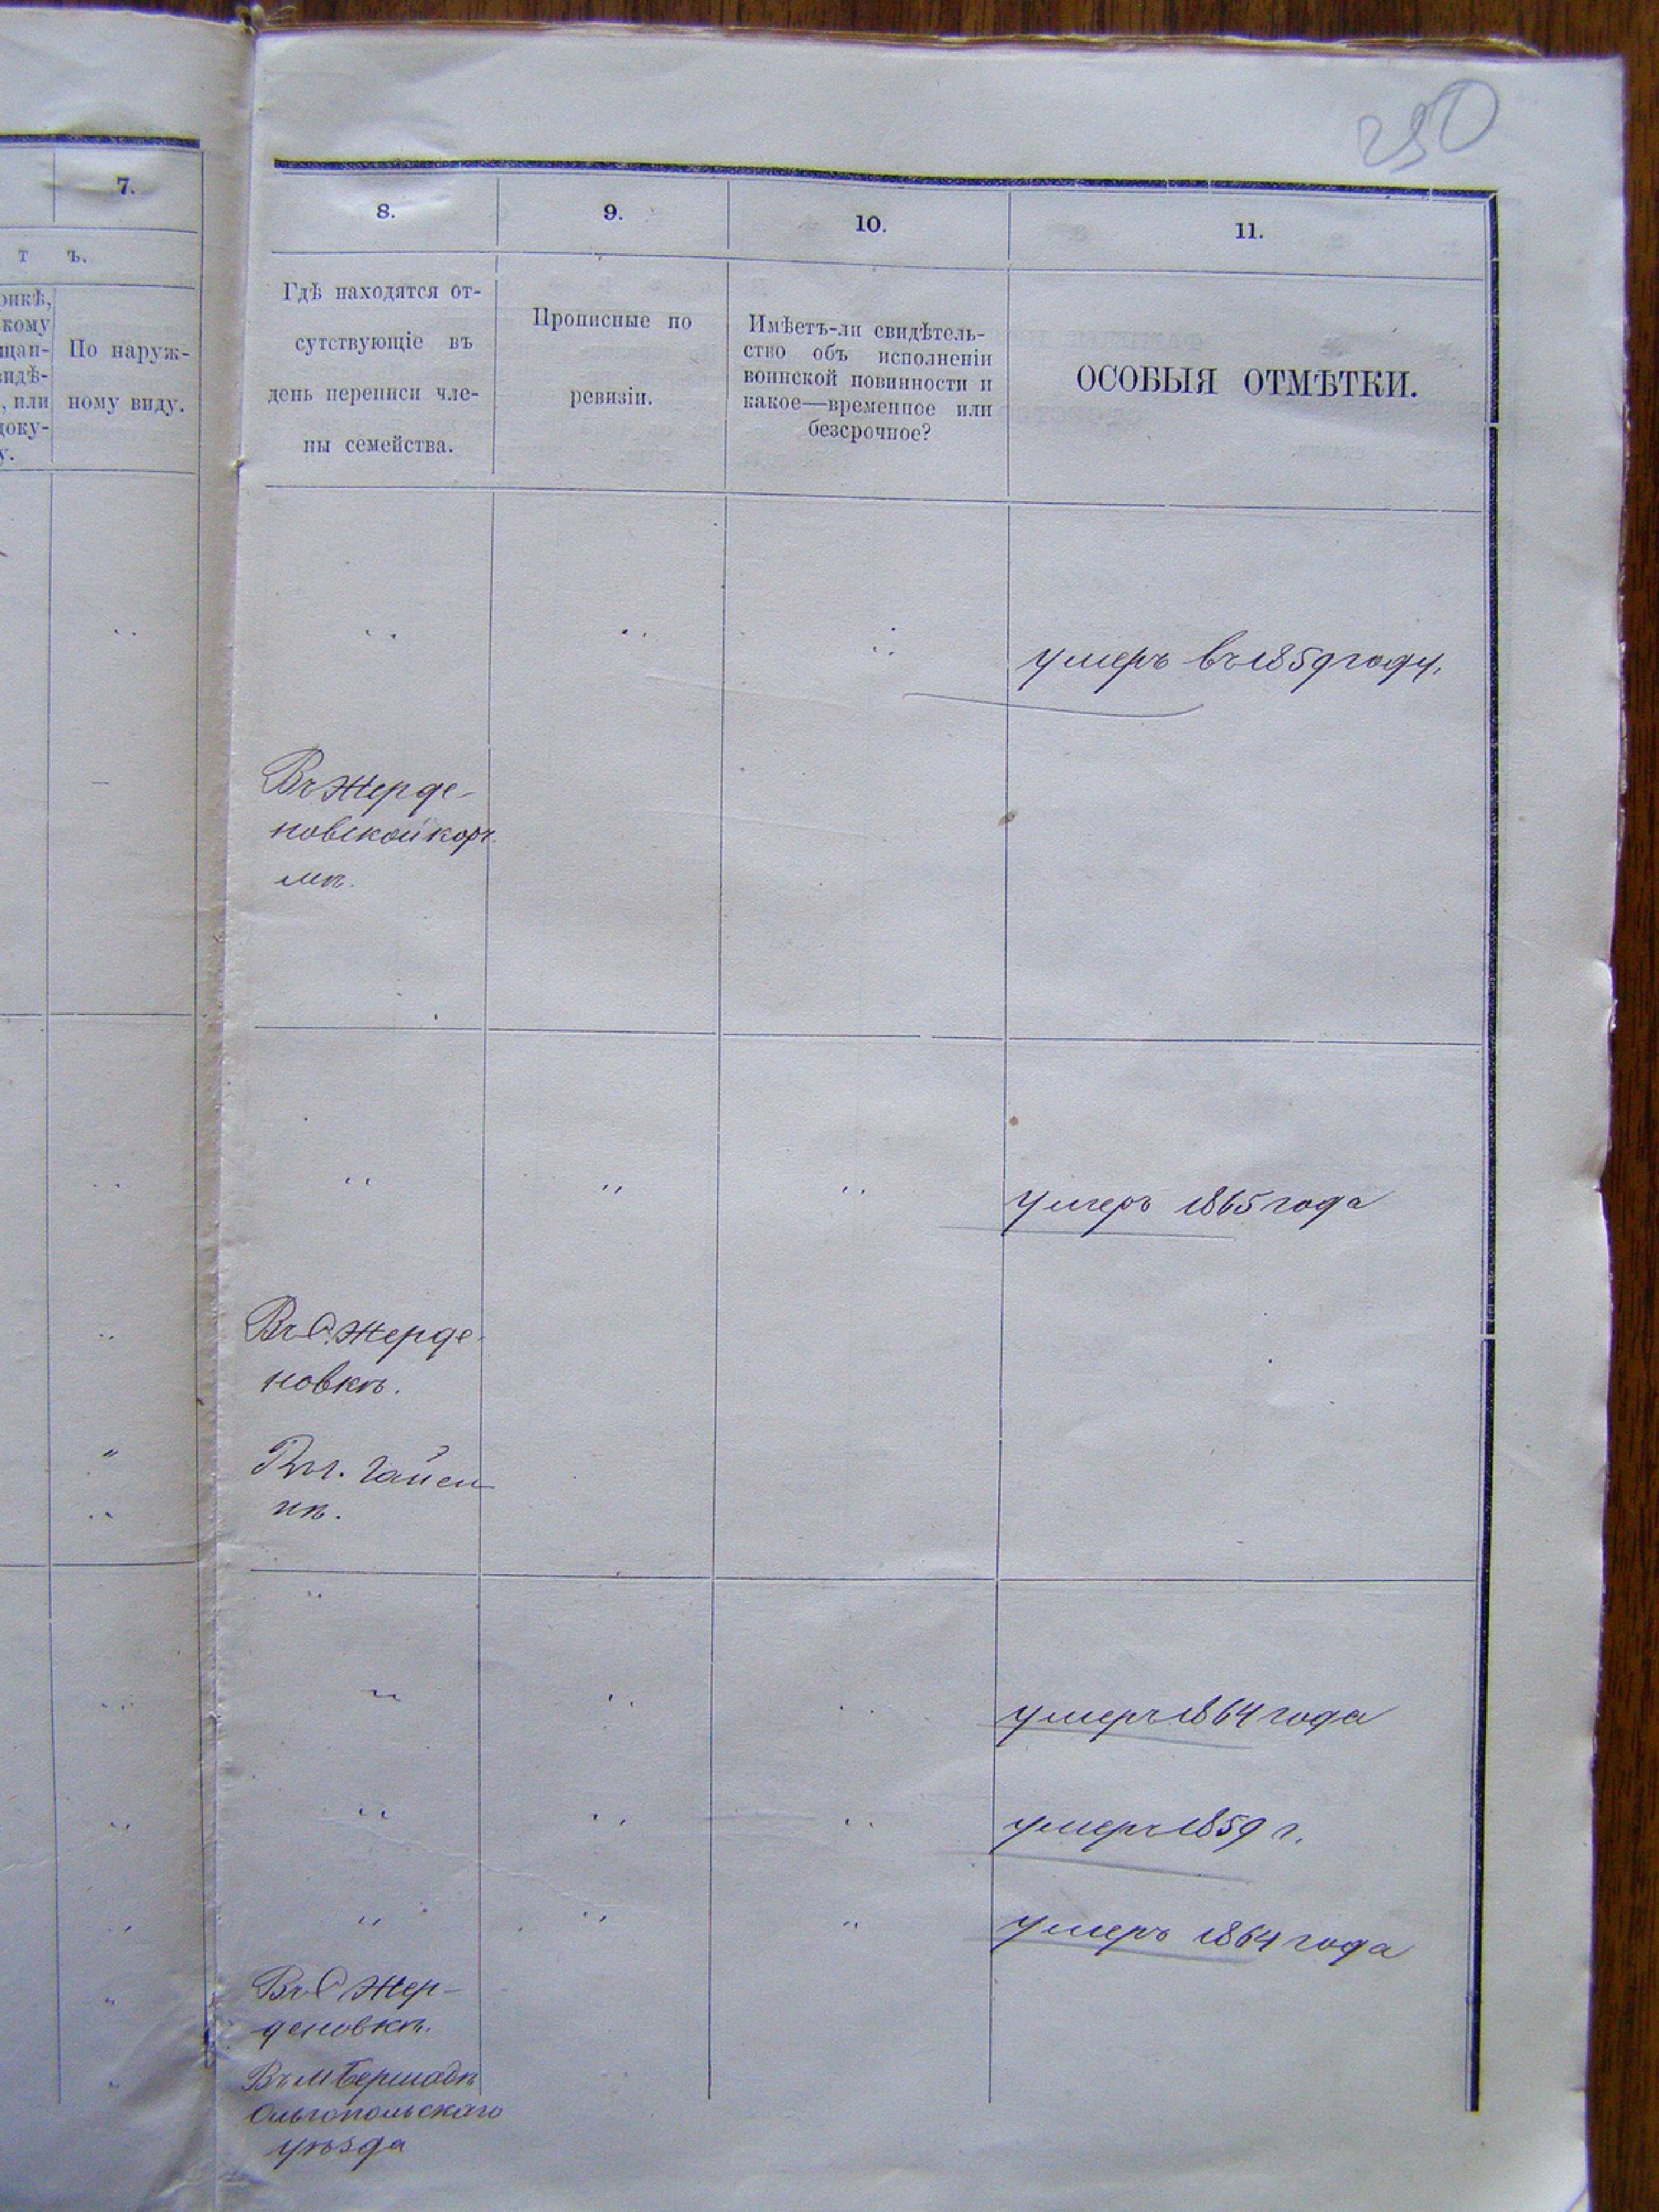 250
7.
8.
9.
10.
11.
т ъ.
По наруж-
ному виду.
Гдѣ находятся от-
сутствующіе въ
день переписи чле-
ны семейства.
Прописные по
ревизіи.
Имѣетъ-ли свидѣтель-
ство объ исполненіи
воинской повинности и
какое—временное или
безсрочное?
ОСОБЫЯ ОТМѢТКИ.
умеръ въ 1859 году.
Въ Жерде-
новской корч
мѣ.
умеръ 1865 года
Въ С. Жерде
новкѣ.
Въ г. Гайси
нѣ.
умеръ 1864 года
умеръ 1859 г.
умеръ 1864 года
Въ С Жер-
деновкѣ.
Въ м Бершадѣ
Ольгопольскаго
уѣзда